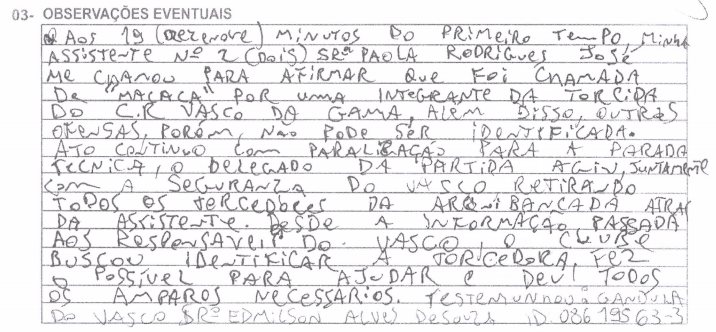 03- OBSERVAÇÕES EVENTUAIS
Aos 19 (DEZENOVE) MINUTOS DO PRIMEIRO TEMPO, MINHA
ASSISTENTE Nº 2 (DOIS) SRª PAOLA RODRIGUES JOSÉ
ME CHAMOU PARA AFIRMAR QUE FOI CHAMADA
DE "MACACA" POR UMA INTEGRANTE DA TORCIDA
DO C.R VASCO DA GAMA, ALÉM DISSO, OUTRAS
OFENSAS, PORÉM, NÃO PODE SER IDENTIFICADA.
ATO CONTINUO COM PARALIZAÇÃO PARA A PARADA
TÉCNICA, O DELEGADO DA PARTIDA AGIU, JUNTAMENTE
COM A SEGURANZA DO VASCO RETIRANDO
TODOS OS TORCEDORES DA ARQUIBANCADA ATRAS
DA ASSISTENTE. DESDE A INFORMAÇÃO PASSADA
AOS RESPONSAVEIS DO VASCO, O CLUBE
BUSCOU IDENTIFICAR A TORCEDORA, FEZ
O POSSÍVEL PARA AJUDAR E DEU TODOS
OS AMPAROS NECESSARIOS. TESTEMUNHOU O GANDULA
DO VASCO SRº EDMILSON ALVES DE SOUZA ID. 036 195 63-3